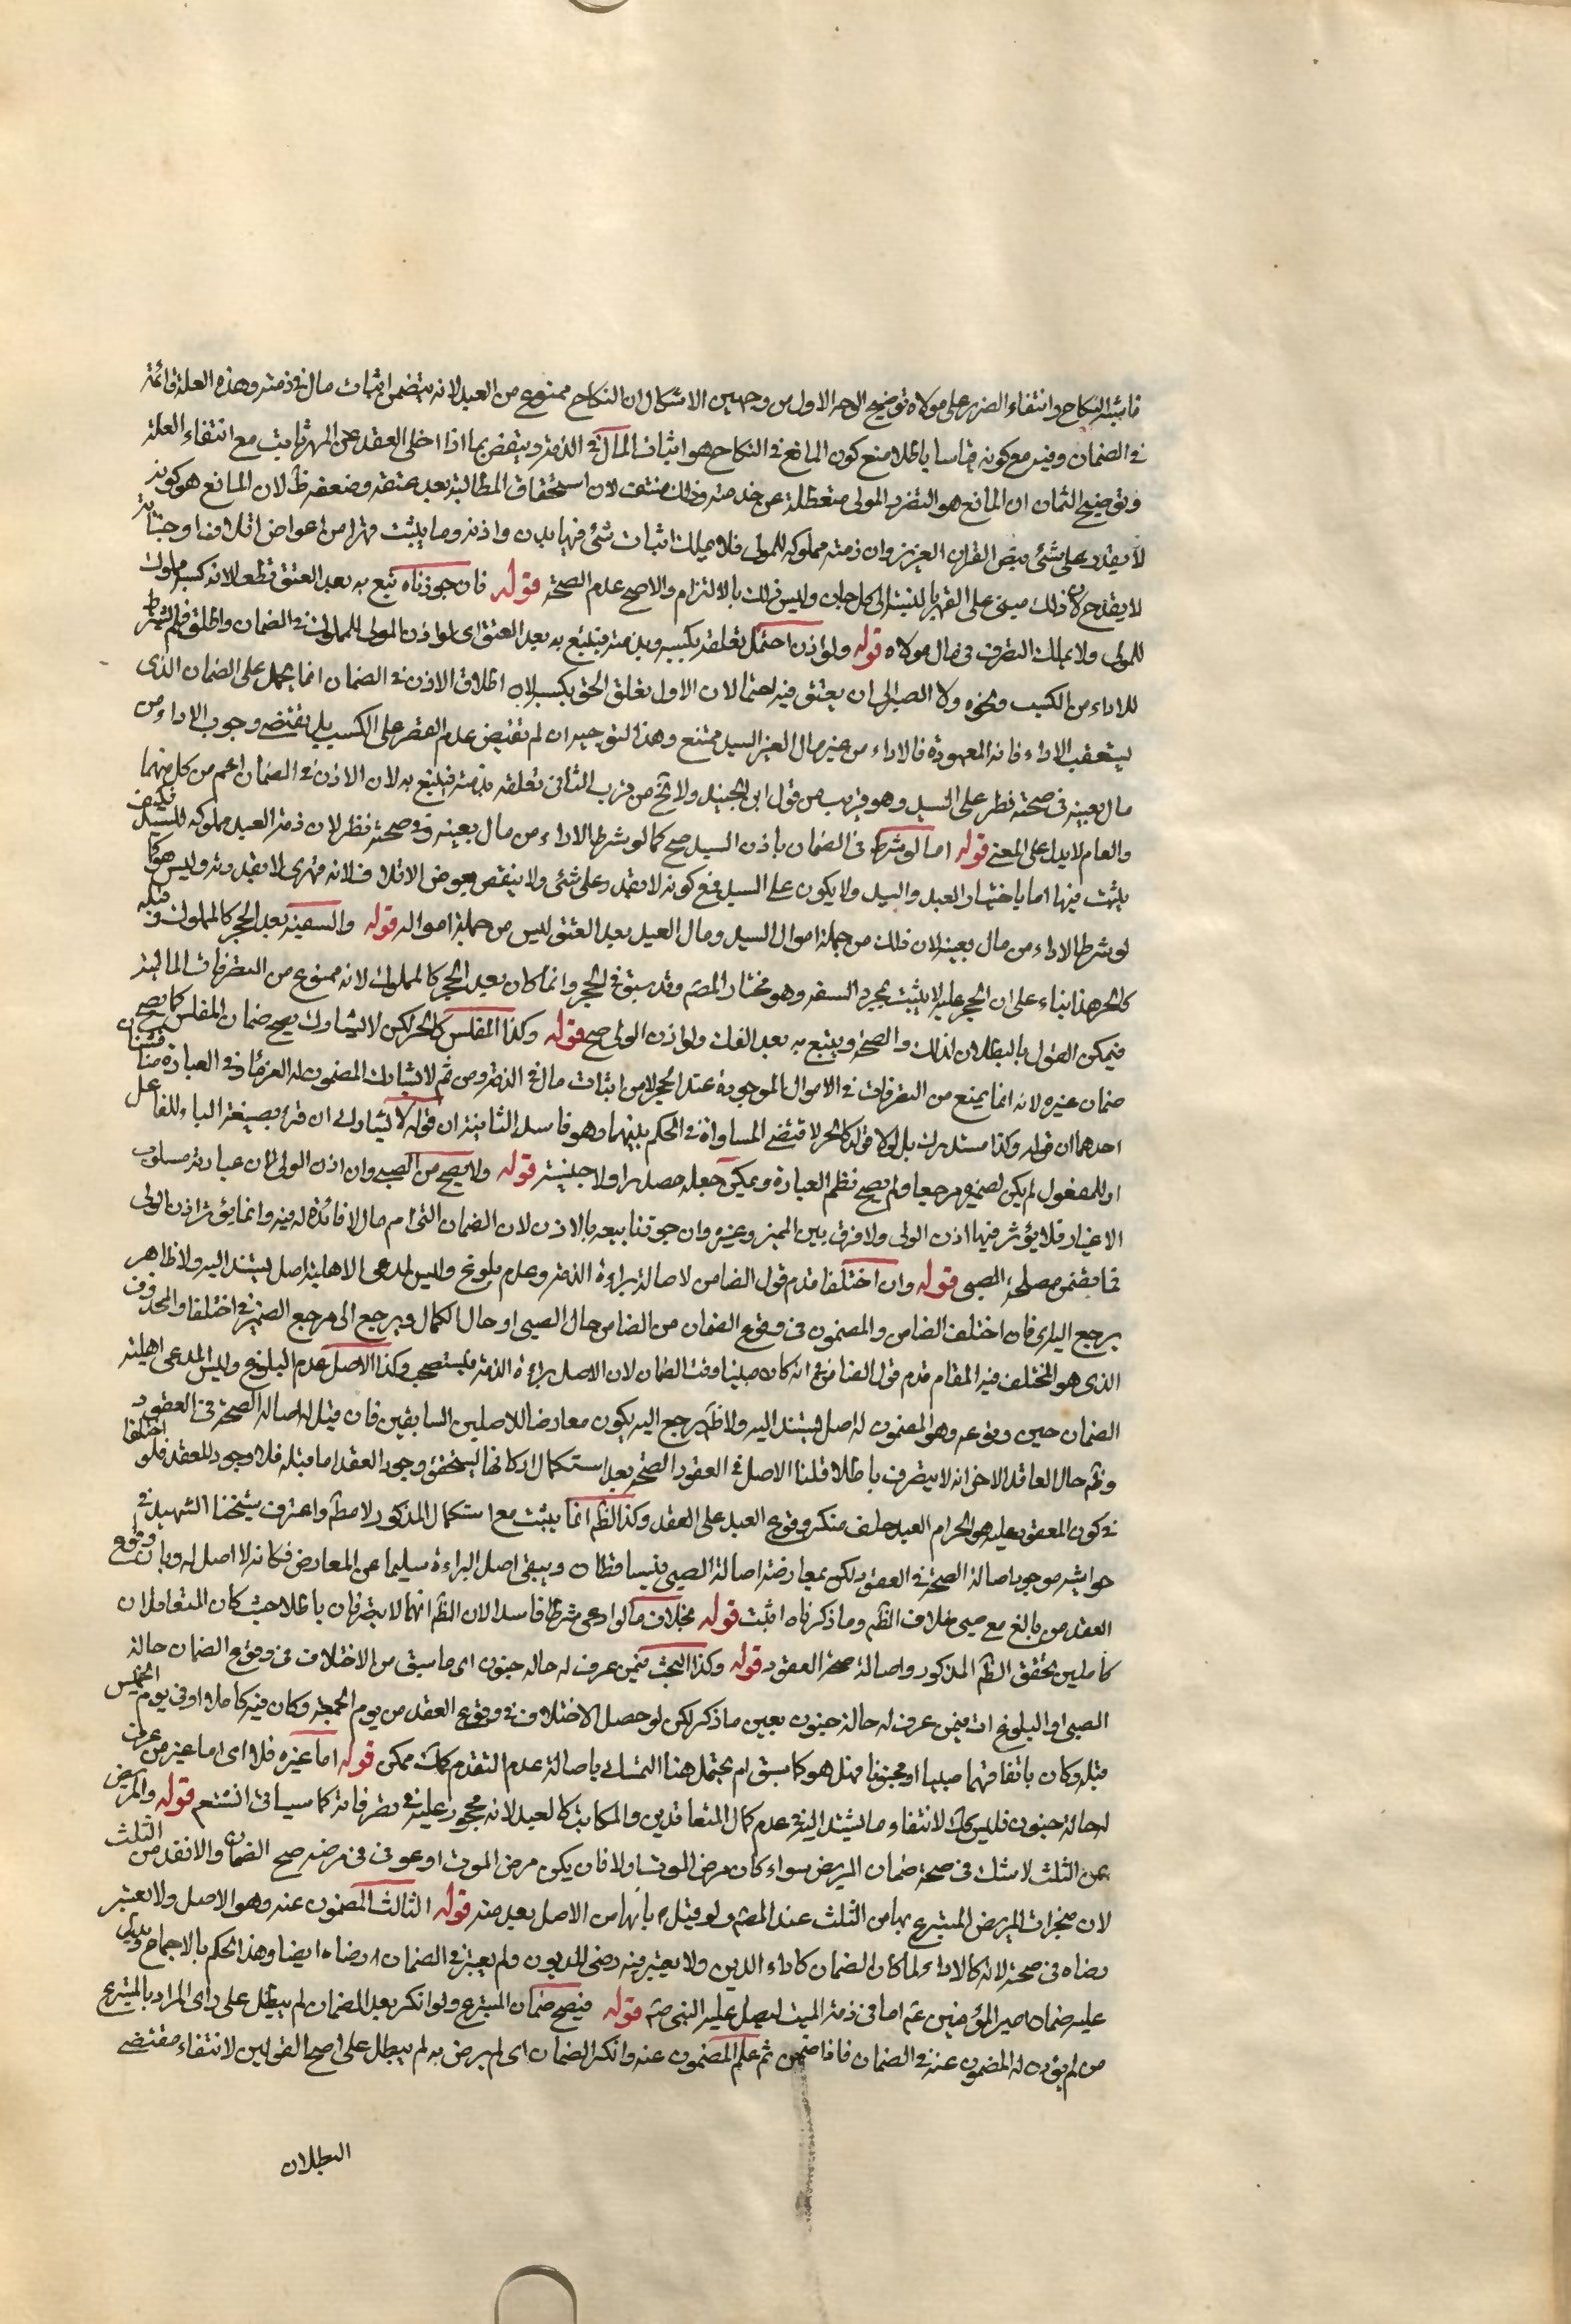 فاشبه النكاح وانتفاء الضرر على مولاه توضيح الوجه الاول من وجهين الاشكال ان النكاح ممنوع من العبد لانه يتضمن اثبات مال في ذمته وهذه العلة قائمة
في الضمان وفيه مع كونه قياسا باطلا منع كون المانع في النكاح هو اثبات المال في الذمة وينقض بما اذا اخلى العقد عن المهر ثابت مع انتفاء العلة
وتوضيح الثمان ان المانع هو التضرر المولى متعطلة عن خدمته وذلك منتف لان استحقاق المطالبة بعد عتقه وضعفه ظ لان المانع هو كونه
لا يقدر على شئ بنص القران العزيز وان ذمته مملوكه للمولى فلا يملك اثبات شئ فيها بدون اذنه وما يثبت قهرا من اعواض اتلاف او جناية
لا يقدح لان ذلك مبنى على القهر بالنسبة الى كل جان وليس ذلك بالالتزام والاصح عدم الصحة قوله فان جوزناه تبع به بعد العتق قطعا لانه كسبه مملوك
للمولى ولا يملك التصرف في مال مولاه قوله ولو اذن احتمل تعلقه بكسبه وبذمته فيتبع به بعد العتق اى لو اذن المولى للمملوك في الضمان واطلق فلم يشترط
للاداء من الكسب ونحوه ولا الصبر الى ان يعتق فيه احتمالان الاول تعلق الحق بكسبه لان اطلاق الاذن في الضمان انما يحمل على الضمان الذى
يستعقب الاداء فانه المعهود فالاداء من غير مال الغير السيد ممتنع وهذا التوجيه ان لم تقتض عدم القصر على الكسب بل يقتضى وجوب الاداء من
مال بعينه في صحته نظر على السيد وهو قريب من قول ابن الجنيد ولا تخ من قرب الثانى تعلقه بذمته فيتبع به لان الاذن في الضمان اعم من كل منهما
والعام لا يدل على المعنى قوله اما لو شرط في الضمان باذن السيد صح كما لو شرط الاداء من مال بعينه وفي صحته نظر لان ذمة العبد مملوكه للسيد فكيف
يثبت فيها اما باختيار العبد والسيد ولا يكون على السيد مع كونه لا يقدر على شئ ولا ينقض بعوض الاتلاف لانه قهرى لا بقدرته وليس هو كما
لو شرط الاداء من مال بعينه لان ذلك من جملة اموال السيد ومال العبد بعد العتق ليس من جملة امواله قوله والسفيه بعد الحجر كالمملوك وقبله
كالحر هذا بناء على ان الحجر عليه لا يثبت بمجرد السفه وهو مختار المصم وقد سبق في الحجر وانما كان بعد الحجر كالمملوك لانه ممنوع من التصرفات المالية
فيمكن القول بالبطلان لذلك والصحة ويتبع به بعد الفك ولو اذن الولى صح قوله وكذا المفلس كالحر لكن لا يشارك يصح ضمان المفلس كما يصح
ضمان غيره لانه انما يمنع من التصرفات في الاموال الموجودة عند الحجر لا من اثبات مال في الذمة ومن ثم لا يشارك المضمون له الغرماء وفي العبارة مناقشتان
احدهما ان قوله وكذا مستدرك بل لولا قوله كالحر لاقتضى المساواة في الحكم بينهما وهو فاسد الثانية ان قوله لا يشارك ان قرئ بصيغة البناء للفاعل
او للمفعول لم يكن لضميره مرجعا ولم يصح نظم العبارة ويمكن جعله مصدرا ولا جنسية قوله ولا يصح من الصبى وان اذن الولى لان عبارته مسلوب
الاعتبار فلا يؤثر فيها اذن الولى ولا فرق بين المميز وغيره وان جوزنا بيعه بالاذن لان الضمان التزام مال لا فائدة له فيه وانما يؤثر اذن الولى
فما تضمن مصلحة الصبى قوله وان اختلفا قدم قول الضامن لاصالة براءة الذمة وعدم بلوغه وليس لمدعى الاهلية اصل يستند اليه ولا ظاهر
يرجع اليه اى فان اختلف الضامن والمضمون في وقوع الضمان من الضامن حال الصبى او حال الكمال ويرجع الى مرجع الضمير في اختلفا والمحذوف
الذى هو المختلف فيه المقام قدم قول الضامن في انه كان صبيا وقت الضمان لان الاصل براءة الذمة فيستصحب وكذا الاصل عدم البلوغ وليس لمدعى اهلية
الضمان حين وقوعه وهو المضمون له اصل يستند اليه ولا ظ يرجع اليه يكون معارضا للاصلين السابقين فان قيل له اصالة الصحة في العقود
وظ حال العاقد الاخر انه لا يتصرف باطلا قلنا الاصل في العقود الصحة بعد استكمال اركانها ليتحقق وجود العقد اما قبله فلا وجود للعقد فلو اختلفا
في كون المعقود عليه هو الحر ام العبد حلف منكر وقوع العبد على العقد وكذا الظم انما يثبت مع استكمال المذكور لا مطم واعترف شيخنا الشهيد في
حواشيه موجود اصالة الصحة في العقود لكن بمعارضة اصالة الصبى فيتساقطان ويبقى اصل البراءة سليما عن المعارض فكانه لا اصل له وبان وقوع
العقد من بالغ مع صبى خلاف الظم وما ذكرناه اثبت قوله بخلاف ما لو ادعى شرطا فاسدا لان الظم انهما لا يتصرفان باطلا حيث كان المتعاملان
كاملين تحقق الظم المذكور واصالة صحة العقود قوله وكذا البحث فيمن عرف له حالة جنون اى ما سبق من الاختلاف في وقوع الضمان حالة
الصبى او البلوغ ات فيمن عرف له حالة جنون بعين ما ذكر لكن لو حصل الاختلاف في وقوع العقد من يوم الجمعة وكان فيه كاملا او في يوم الخميس
قبله وكان باتفاقهما صبيا او مجنونا فهل هو كما سبق ام يحتمل هنا التمسك باصالة عدم التقدم كلك ممكن قوله اما غيره فلا اى اما غير من عرف
له حالة جنون فليس كلك لانتفاء ما يستند اليه في عدم كمال المتعاقدين والمكاتب كالعبد لانه محجور عليه في تصرفاته كما سياتى انشتعم قوله والمريض
من الثلث لا شك في صحة ضمان المريض سواء كان مرض الموت او لا فان يكن مرض الموت او عوفى في مرضه صح الضمان والا نفذ من الثلث
لان منجزات المريض المتبرع بها من الثلث عند المصم ولو قيل بانها من الاصل بعد منه قوله الثالث المضمون عنه وهو الاصل ولا يعتبر
رضاه في صحته لانه كالاداء ولما كان الضمان كاداء الدين ولا يعتبر فيه رضى المديون ولم يعتبر في الضمان رضاه ايضا وهذا الحكم بالاجماع ويدل
عليه ضمان امير المؤمنين عم اما في ذمة الميت ليصل عليه النبى صم قوله فيصح ضمان المتبرع ولو انكر بعد الضمان لم يبطل على راى المراد بالمتبرع
من لم يؤذن له المضمون عنه في الضمان فاذا ضمن ثم علم المضمون عنه وانكر الضمان اى لم يرض به لم يبطل على اصح القولين لانتفاء مقتضى
البطلان